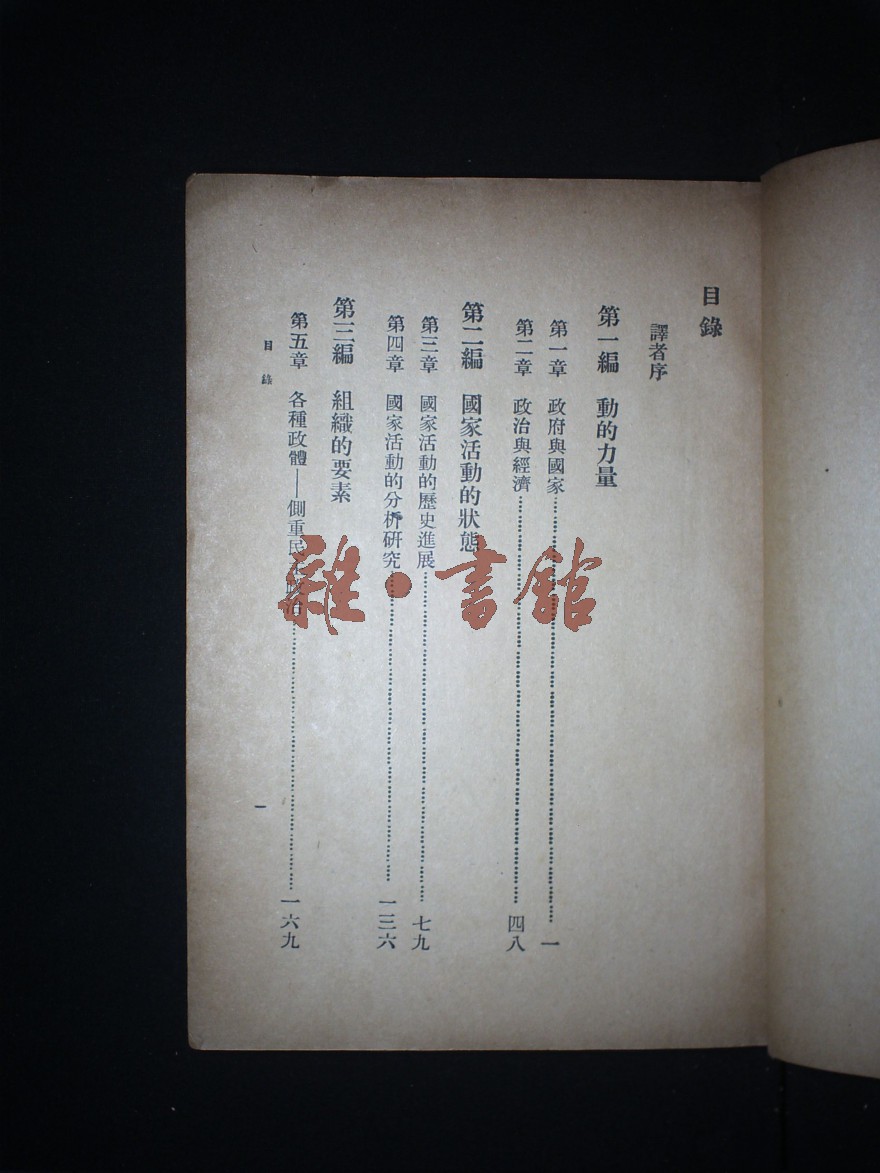 目錄
譯者序
第一編 動的力量
第一章 政府與國家……一
第二章 政治與經濟……四八
第二編 國家活動的狀態
第三章 國家活動的歷史進展……七九
第四章 國家活動的分析研究……一三六
第三編 組織的要素
第五章 各種政體——側重民 政治……一六九
目錄
一
雜·書館